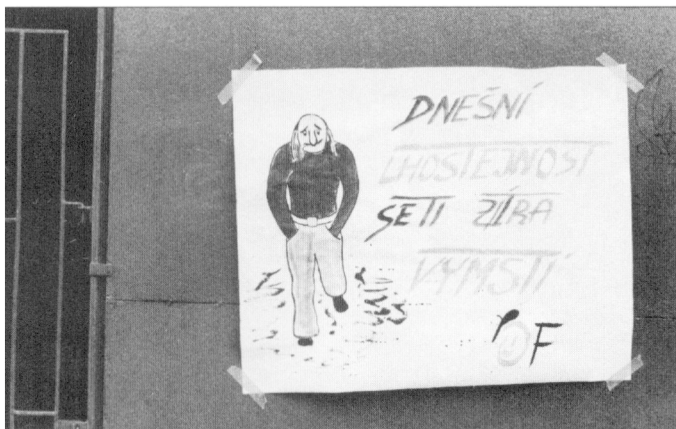 DNEŠNÍ
LHOSTEJNOST
SE TI ZÍTRA
VYMSTÍ
OF